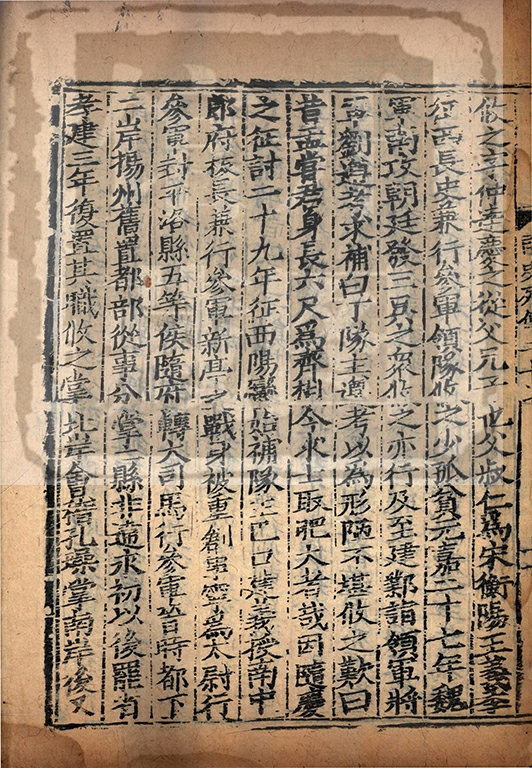 攸之字仲達慶之從父兄子也父叔仁爲宋衡陽王義季
征西長史兼行參軍領隊攸之少孤貧元嘉二十七年魏
軍南攻朝廷發三吳之衆攸之亦行及至建鄴詣領軍將
軍劉遵考求補白丁隊主遵考以爲形陋不堪攸之歎曰
昔孟嘗君身長六尺爲齊相今求士取肥大者哉因隨慶
之征討二十九年征西陽蠻始補隊主巴口建義授南中
郎府板長兼行參軍新亭之戰身被重創事寧爲太尉行
參軍封平洛縣五等侯隨府轉大司馬行參軍晉時都下
二岸揚州舊置都部從事分掌二縣非違永初以後罷省
孝建三年復置其職攸之掌北岸會稽孔璪掌南岸後又